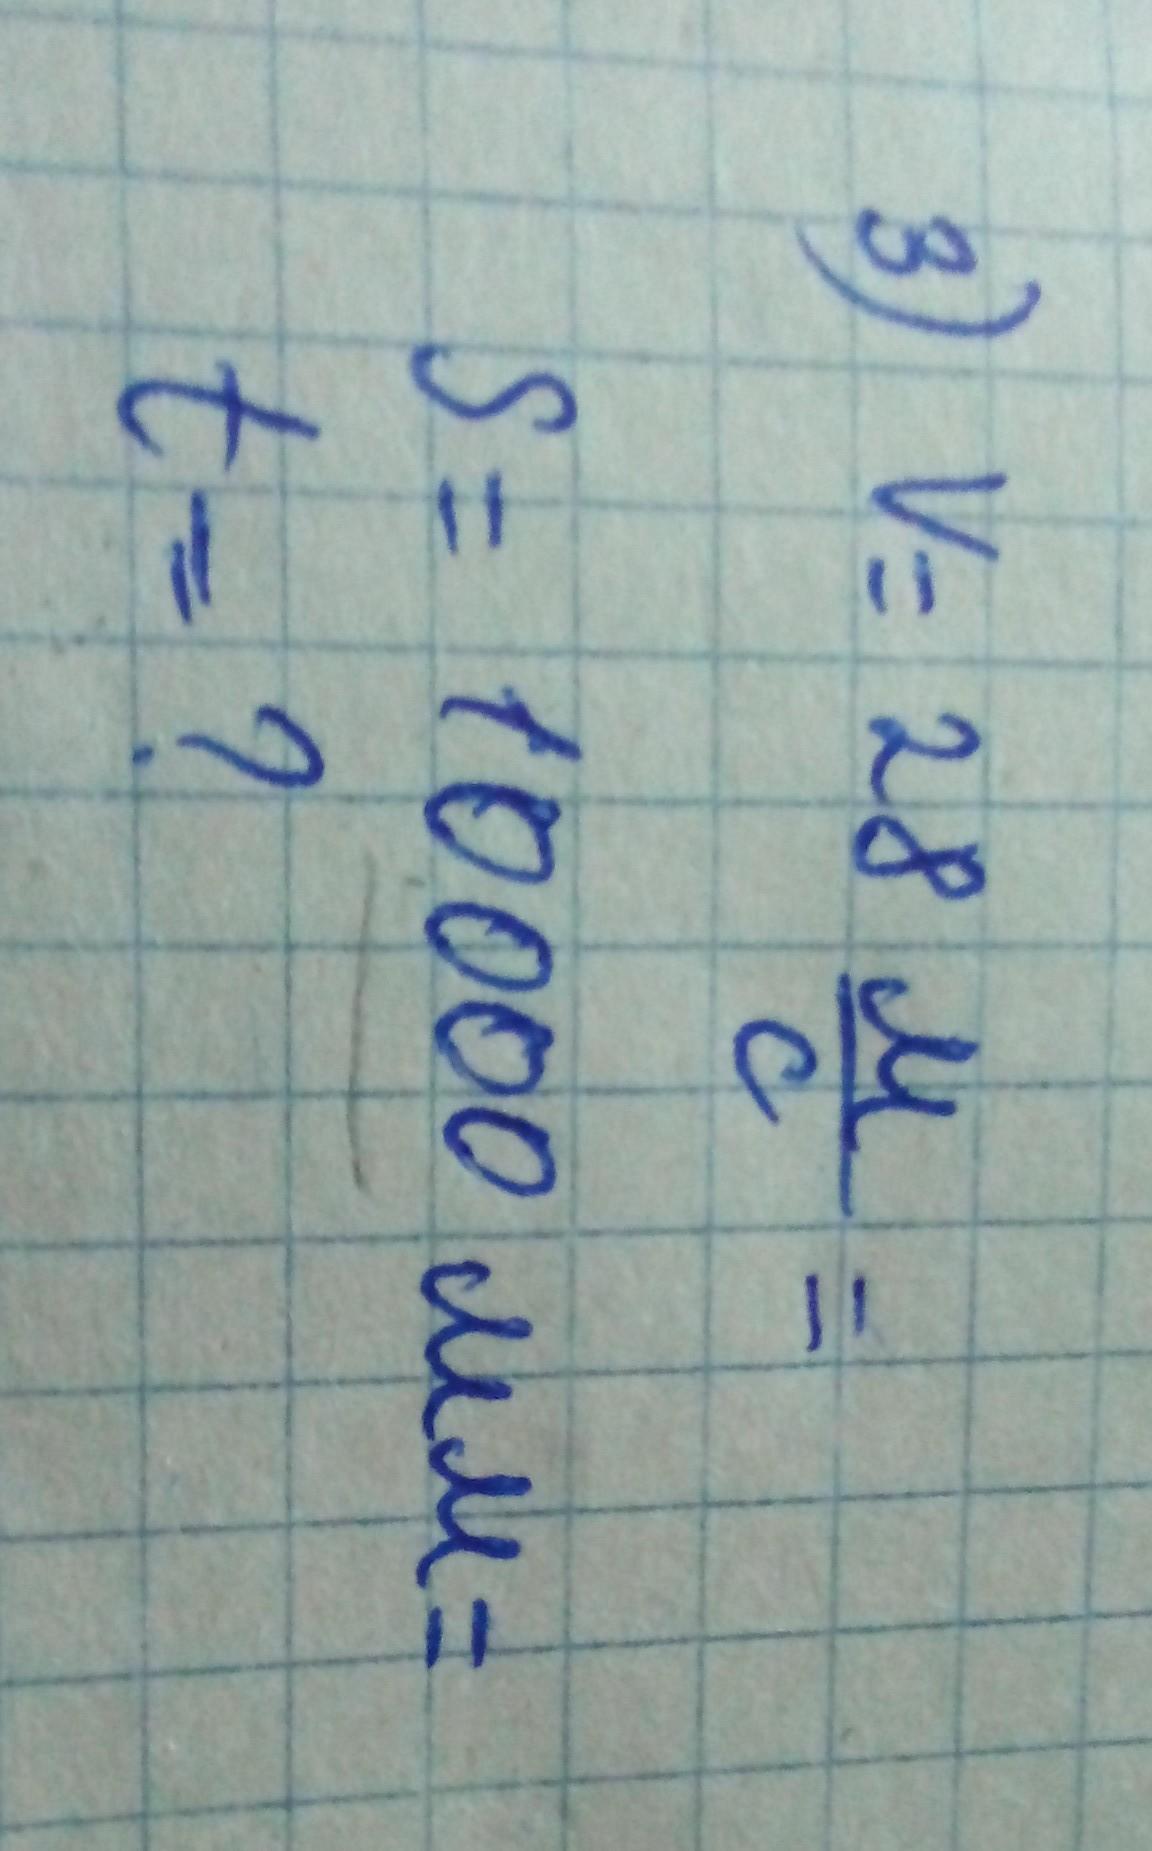 3) V = 28 м/с =
S = 10000 мм =
t = ?